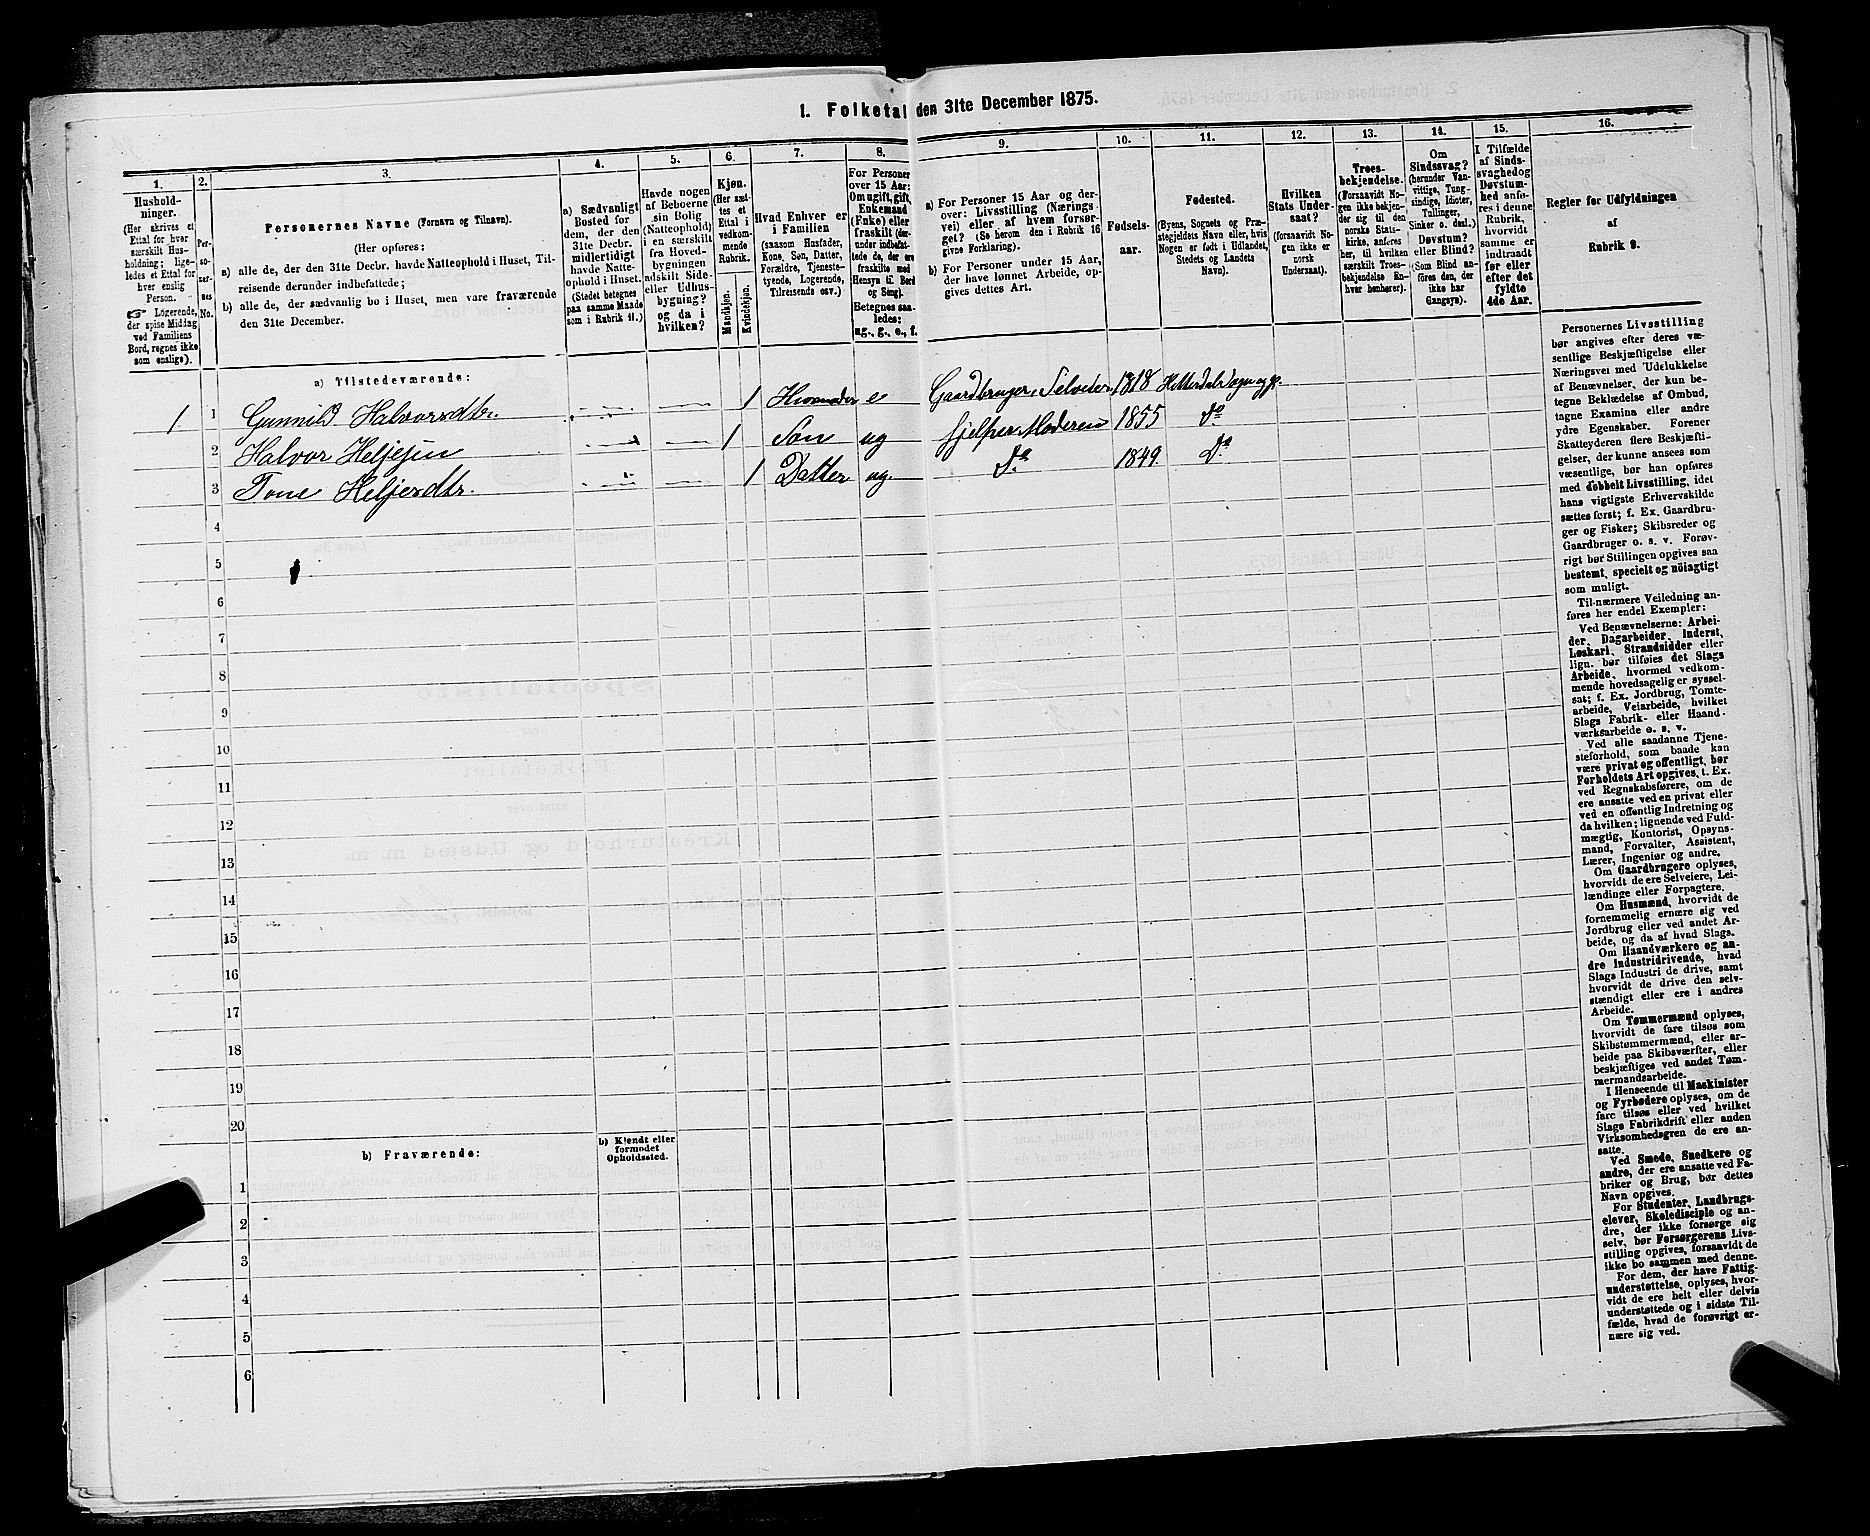 1. Folketal den 31te December 1875.
1.
Hushold-
ninger.
(Her skrives et
Ettal for hver
særskilt Hus-
holdning; lige-
ledes et Ettal for
hver enslig
Person.
☞ Logerende,
der spise Middag
ved Familiens
Bord, regnes ikke
som enslige).
2.
Per-
so-
ner-
nes
No.
3.
Personernes Navne (Fornavn og Tilnavn).
(Her opføres:
a) alle de, der den 31te Decbr. havde Natteophold i Huset, Til-
reisende derunder indbefattede;
b) alle de, der sædvanlig bo i Huset, men vare fraværende
den 31te December.
4.
a) Sædvanligt
Bosted for
dem, der den
31te Decbr.
midlertidigt
havde Natte-
ophold i Huset.
(Stedet betegnes
paa samme Maade
som i Rubrik 11.)
5.
Havde nogen
af Beboerne
sin Bolig
(Natteophold)
i en særskilt
fra Hoved-
bygningen
adskilt Side-
eller Udhus-
bygning?
og da i
hvilken?
6.
Kjøn.
(Her sæt-
tes et
Ettal i
vedkom-
mende
Rubrik.
Mandkjøn.
Kvindekjøn.
7.
Hvad Enhver er
i Familien
(saasom Husfader,
Kone, Søn, Datter,
Forældre, Tjeneste-
tyende, Logerende,
Tilreisende osv.)
8.
For Personer
over 15 Aar:
Om ugift, gift,
Enkemand
(Enke) eller
fraskilt (der-
under indbefat-
tede de, der ere
fraskilte med
Hensyn til Bord
og Seng).
Betegnes saa-
ledes:
ug., g., e., f.
9.
a) For Personer 15 Aar og der-
over: Livsstilling (Nærings-
vei) eller af hvem forsør-
get? (Se herom den i Rubrik 16
givne Forklaring).
b) For Personer under 15 Aar,
der have lønnet Arbeide, op-
gives dettes Art.
10.
Fødsels-
aar.
11.
Fødested.
(Byens, Sognets og Præ-
stegjeldets Navn eller, hvis
Nogen er født i Udlandet,
Stedets og Landets
Navn).
12.
Hvilken
Stats Under-
saat?
(forsaavidt No-
gen ikke er
norsk
Undersaat).
13.
Troes-
bekjendelse.
(Forsaavidt No-
gen ikke bekjen-
der sig til den
norske Stats-
kirke, anføres
her, til hvilken
særskilt Troes-
bekjendelse En-
hver henhører).
14.
Om
Sindssvag?
(herunder Van-
vittige, Tung-
sindige, Idioter,
Tullinger,
Sinker o. desl.)
Døvstum?
eller Blind?
(Som Blind an-
føres den, der
ikke har
Gangsyn).
15.
I Tilfælde
af Sinds-
svaghed og
Døvstum-
hed anfø-
res i denne
Rubrik,
hvorvidt
samme er
indtraadt
før eller
efter det
fyldte
4de Aar.
16.
Regler for Udfyldningen
af
Rubrik 9.
a) Tilstedeværende:
1 1 Gunnild Halvorsdtr. 1 Huusmoder e Gaardbruger, Selveier 1818 Hitterdal Sogn og P.
2 Halvor Heljesen 1 Søn ug hjelper Moderen 1855 do
3 Tone Heljesdtr. 1 Datter ug. do 1849 do
4
5
6
7
8
9
10
11
12
13
14
15
16
17
18
19
20
b) Fraværende:
b) Kjendt eller
formodet
Opholdssted.
1
2
3
4
5
6
Personernes Livsstilling
bør angives efter deres væ-
sentlige Beskjæftigelse eller
Næringsvei med Udelukkelse
af Benævnelser, der kun be-
tegne Beklædelse af Ombud,
tagne Examina eller andre
ydre Egenskaber. Forener
Skatteyderen flere Beskjæfti-
gelser, der kunne ansees som
væsentlige, bør han opføres
med dobbelt Livsstilling, idet
hans vigtigste Erhvervskilde
sættes forst; f. Ex. Gaardbru-
ger og Fisker; Skibsreder og
Gaardbruger o. s. v. Forøv-
rigt bør Stillingen opgives saa
bestemt, specielt og nöiagtigt
som muligt.
Til nærmere Veiledning an-
føres her endel Exempler:
Ved Benævnelserne: Arbei-
der, Dagarbeider, Inderst,
Løskarl, Strandsidder eller
lign. bør tilføies det Slags
Arbeide, hvormed vedkom-
mende hovedsagelig er syssel-
sat; f. Ex. Jordbrug, Tomte-
arbeide, Veiarbeide, hvilket
Slags Fabrik- eller Haand-
værksarbeide o. s. v.
Ved alle saadanne Tjene-
steforhold, som baade kan
være privat og offentligt, bør
Forholdets Art opgives, t. Ex.
ved Regnskabsførere, om de
ere ansatte ved en privat eller
ved en offentlig Indretning og
da hvilken; lignende ved Fuld-
mægtig, Kontorist, Opsyns-
mand, Forvalter, Assistent,
Lærer, Ingeniør og andre.
Om Gaardbrugere oplyses,
hvorvidt de ere Selveiere, Lei-
lændinge eller Forpagtere.
Om Husmænd, hvorvidt de
fornemmelig ernære sig ved
Jordbrug eller ved andet Ar-
beide, og da af hvad Slags.
Om Haandværkere og an-
dre Industridrivende, hvad
Slags Industri de drive, samt
hvorvidt de drive den selv-
stændigt eller ere i andres
Arbeide.
Om Tømmermænd oplyses,
hvorvidt de fare tilsøs som
Skibstømmermænd, eller ar-
beide paa Skibsværfter, eller
beskjæftiges ved andet Tøm-
mermandsarbeide.
I Henseende til Maskinister
og Fyrbødere oplyses, om de
fare tilsøs eller ved hvilket
Slags Fabrikdrift eller anden
Virksomhedsgren de ere an-
satte.
Ved Smede, Snedkere og
andre, der ere ansatte ved Fa-
briker og Brug, bør dettes
Navn opgives.
For Studenter, Landbrugs-
elever, Skoledisciple og an-
dre, der ikke forsørge sig
selv, bør Forsørgerens Livs-
stilling opgives, forsaavidt de
ikke bo sammen med denne.
For dem, der have Fattig-
understøttelse, oplyses, hvor-
vidt de ere helt eller delvis
understøttede og i sidste Til-
fælde, hvad de forøvrigt er-
nære sig ved.